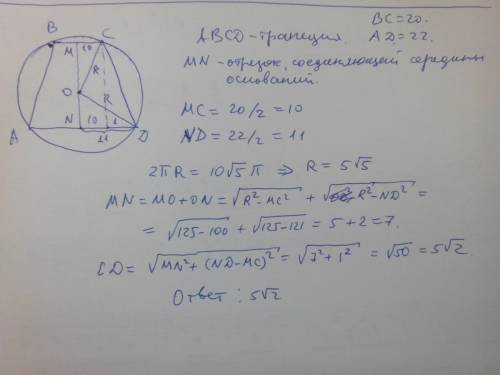 B M 10 C
R
O
R
A N 10 1 D
11
BC=20.
ABCD - трапеция. AD=22.
MN - отрезок, соединяющей середины
оснований.
MC = 20/2 = 10
ND = 22/2 = 11
2πR = 10√5 π ⇒ R = 5√5
MN = MO + ON = √(R² - MC²) + √(R² - ND²) =
= √(125-100) + √(125-121) = 5 + 2 = 7.
CD = √(MN² + (ND - MC)²) = √(7² + 1²) = √50 = 5√2.
Ответ: 5√2